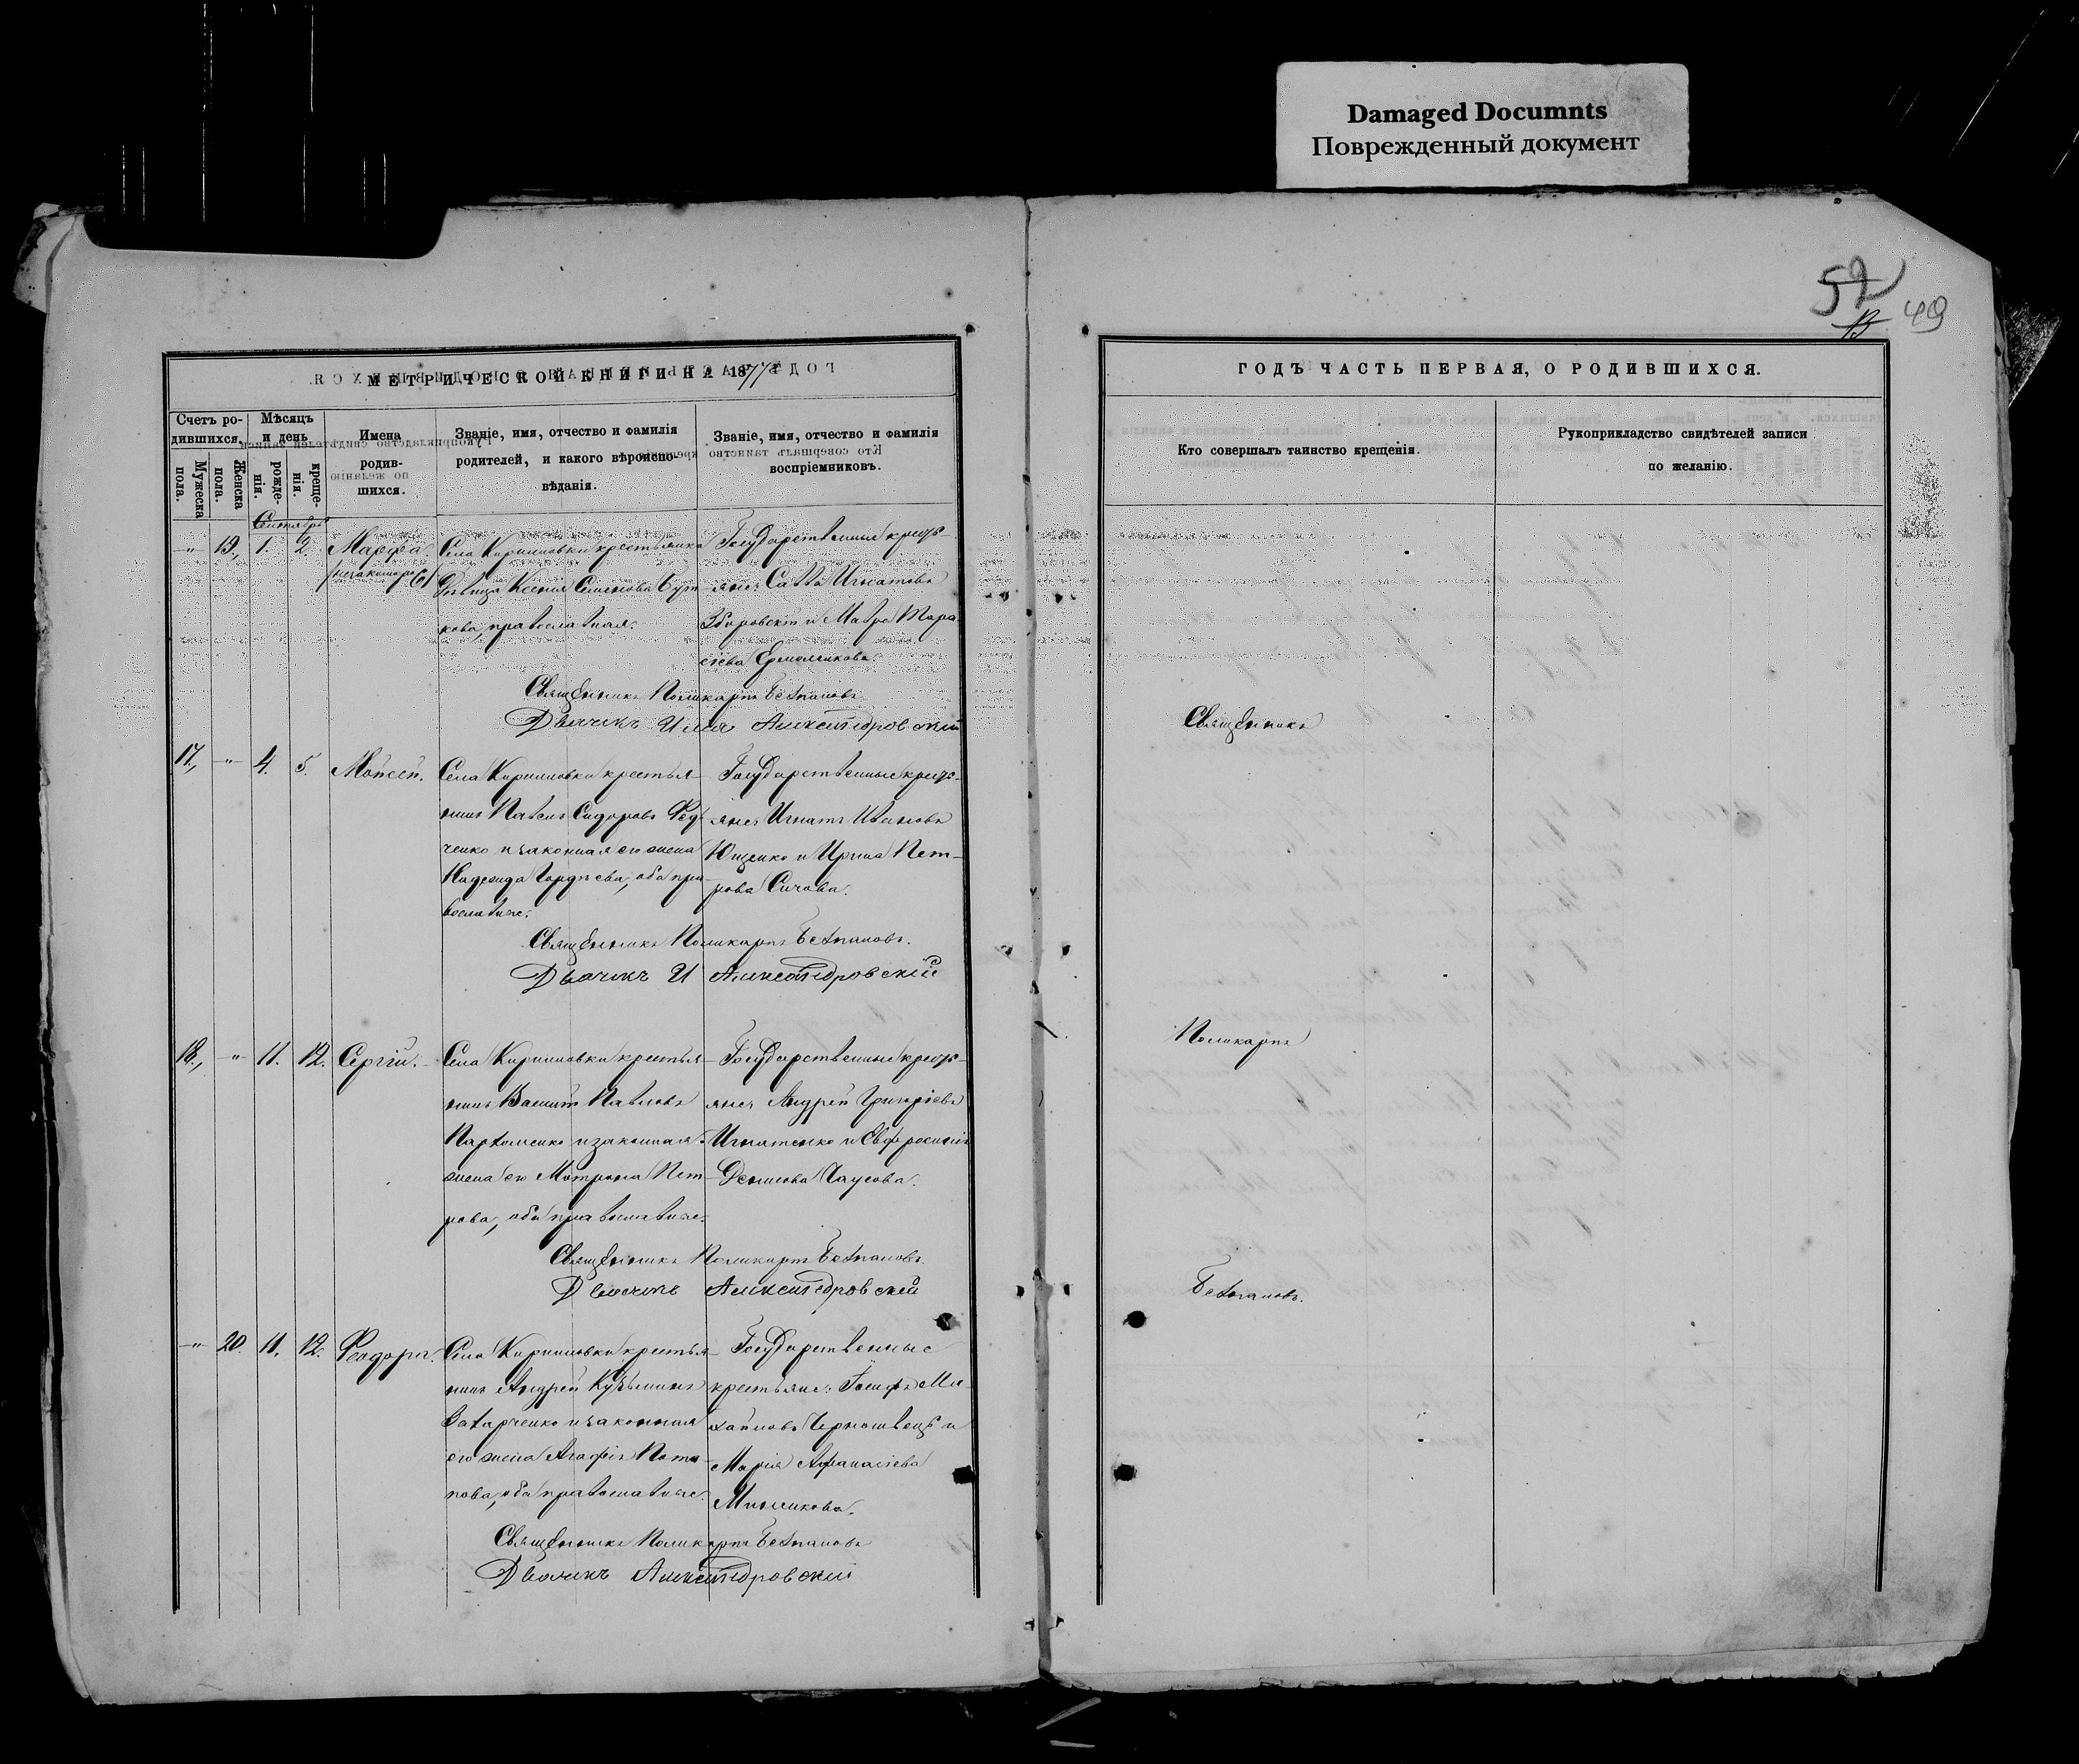 Damaged Documnts
Поврежденный документ
52
49
МЕТРИЧЕСКОЙ КНИГИ НА 1877
ГОДЪ ЧАСТЬ ПЕРВАЯ, О РОДИВШИХСЯ.
Счетъ ро-
дившихся.
Мужеска
пола.
Женска
пола.
Мѣсяцъ
и день
рожде-
нія.
креще-
нія.
Имена
родив-
шихся.
Званіе, имя, отчество и фамилія
родителей, и какого вѣроиспо-
вѣданія.
Званіе, имя, отчество и фамилія
воспріемниковъ.
Кто совершалъ таинство крещенія.
Рукоприкладство свидѣтелей записи
по желанію.
Сентябрь
-"- 19., 1. 2. Марфа.
Села крестьянка
Дѣвица Ксенія Семенова
кова, православная.
Государственные крест-
яне: Савва Игнатовъ
Збаровскій и Мавра Тара
сіева Ермолчикова.
Священникъ Поликарпъ
Дьячекъ Илія Александровскій
17., -"- 4. 5. Моисей.
Села крестья-
нинъ Павелъ Сидоровъ Фед-
ченко и законная его жена
Надежда Гордѣева, оба пра-
вославные.
Государственные крест-
яне: Игнатъ Ивановъ
Ющенко и Ирина Пет-
рова Сичова.
Священникъ Поликарпъ
Дьячекъ И Александровскій
18., -"- 11. 12. Сергій.
Села крестья-
нинъ Павловъ
Пархоменко и законная
жена его Матрона Пет-
рова, оба православные.
Государственные крест-
яне: Андрей Григоріевъ
Игнатенко и Евфросинія
Денисова Чаусова.
Священникъ Поликарпъ
Дьячекъ Александровскій
-"- 20. 11. 12. Феодора.
Села крестья-
нинъ Андрей Кузьминъ
Захарченко и законная
его жена Агафія Пота-
пова, оба православные.
Государственные
крестьяне: Іосифъ Ми-
хайловъ Черношвецъ и
Марія Афанасіева
Священникъ Поликарпъ
Дьячекъ Александровскій
Священникъ
Поликарпъ